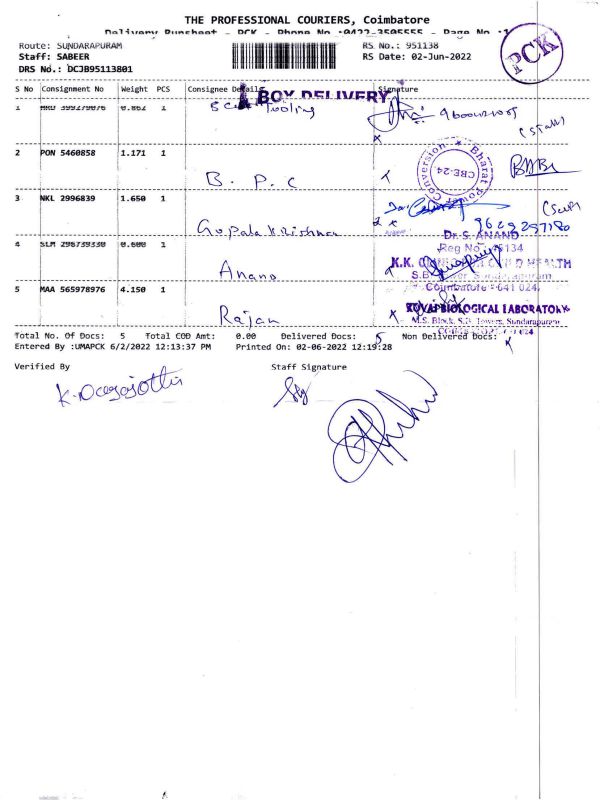 THE PROFESSIONAL COURIERS, Coimbatore
Delivery Runsheet - PCK - Phone No :0422-3505555 - Page No :1
Route: SUNDARAPURAM
RS No.: 951138
Staff: SABEER
RS Date: 02-Jun-2022
DRS No.: DCJB95113801
PCK
S No Consignment No Weight PCS Consignee Details Signature
BOX DELIVERY
1 0.862 1 Tooling
2 PON 5460858 1.171 1 B. P. C
Conversion * Bharat Power
CBE-24
3 NKL 2996839 1.650 1 Gopala Krishnan
9629297180
Dr. S. ANAND
Reg No
4 SLM 298739330 0.600 1 Anand
K.K.
S.B. Tower Sundarapuram
Coimbatore - 641 024
5 MAA 565978976 4.150 1 Rajan
KOVAI BIOLOGICAL LABORATORY
M.S. Block, S.B. Towers, Sundarapuram
Total No. Of Docs: 5 Total COD Amt: 0.00 Delivered Docs: 5 Non Delivered Docs:
Entered By :UMAPCK 6/2/2022 12:13:37 PM Printed On: 02-06-2022 12:19:28
Verified By Staff Signature